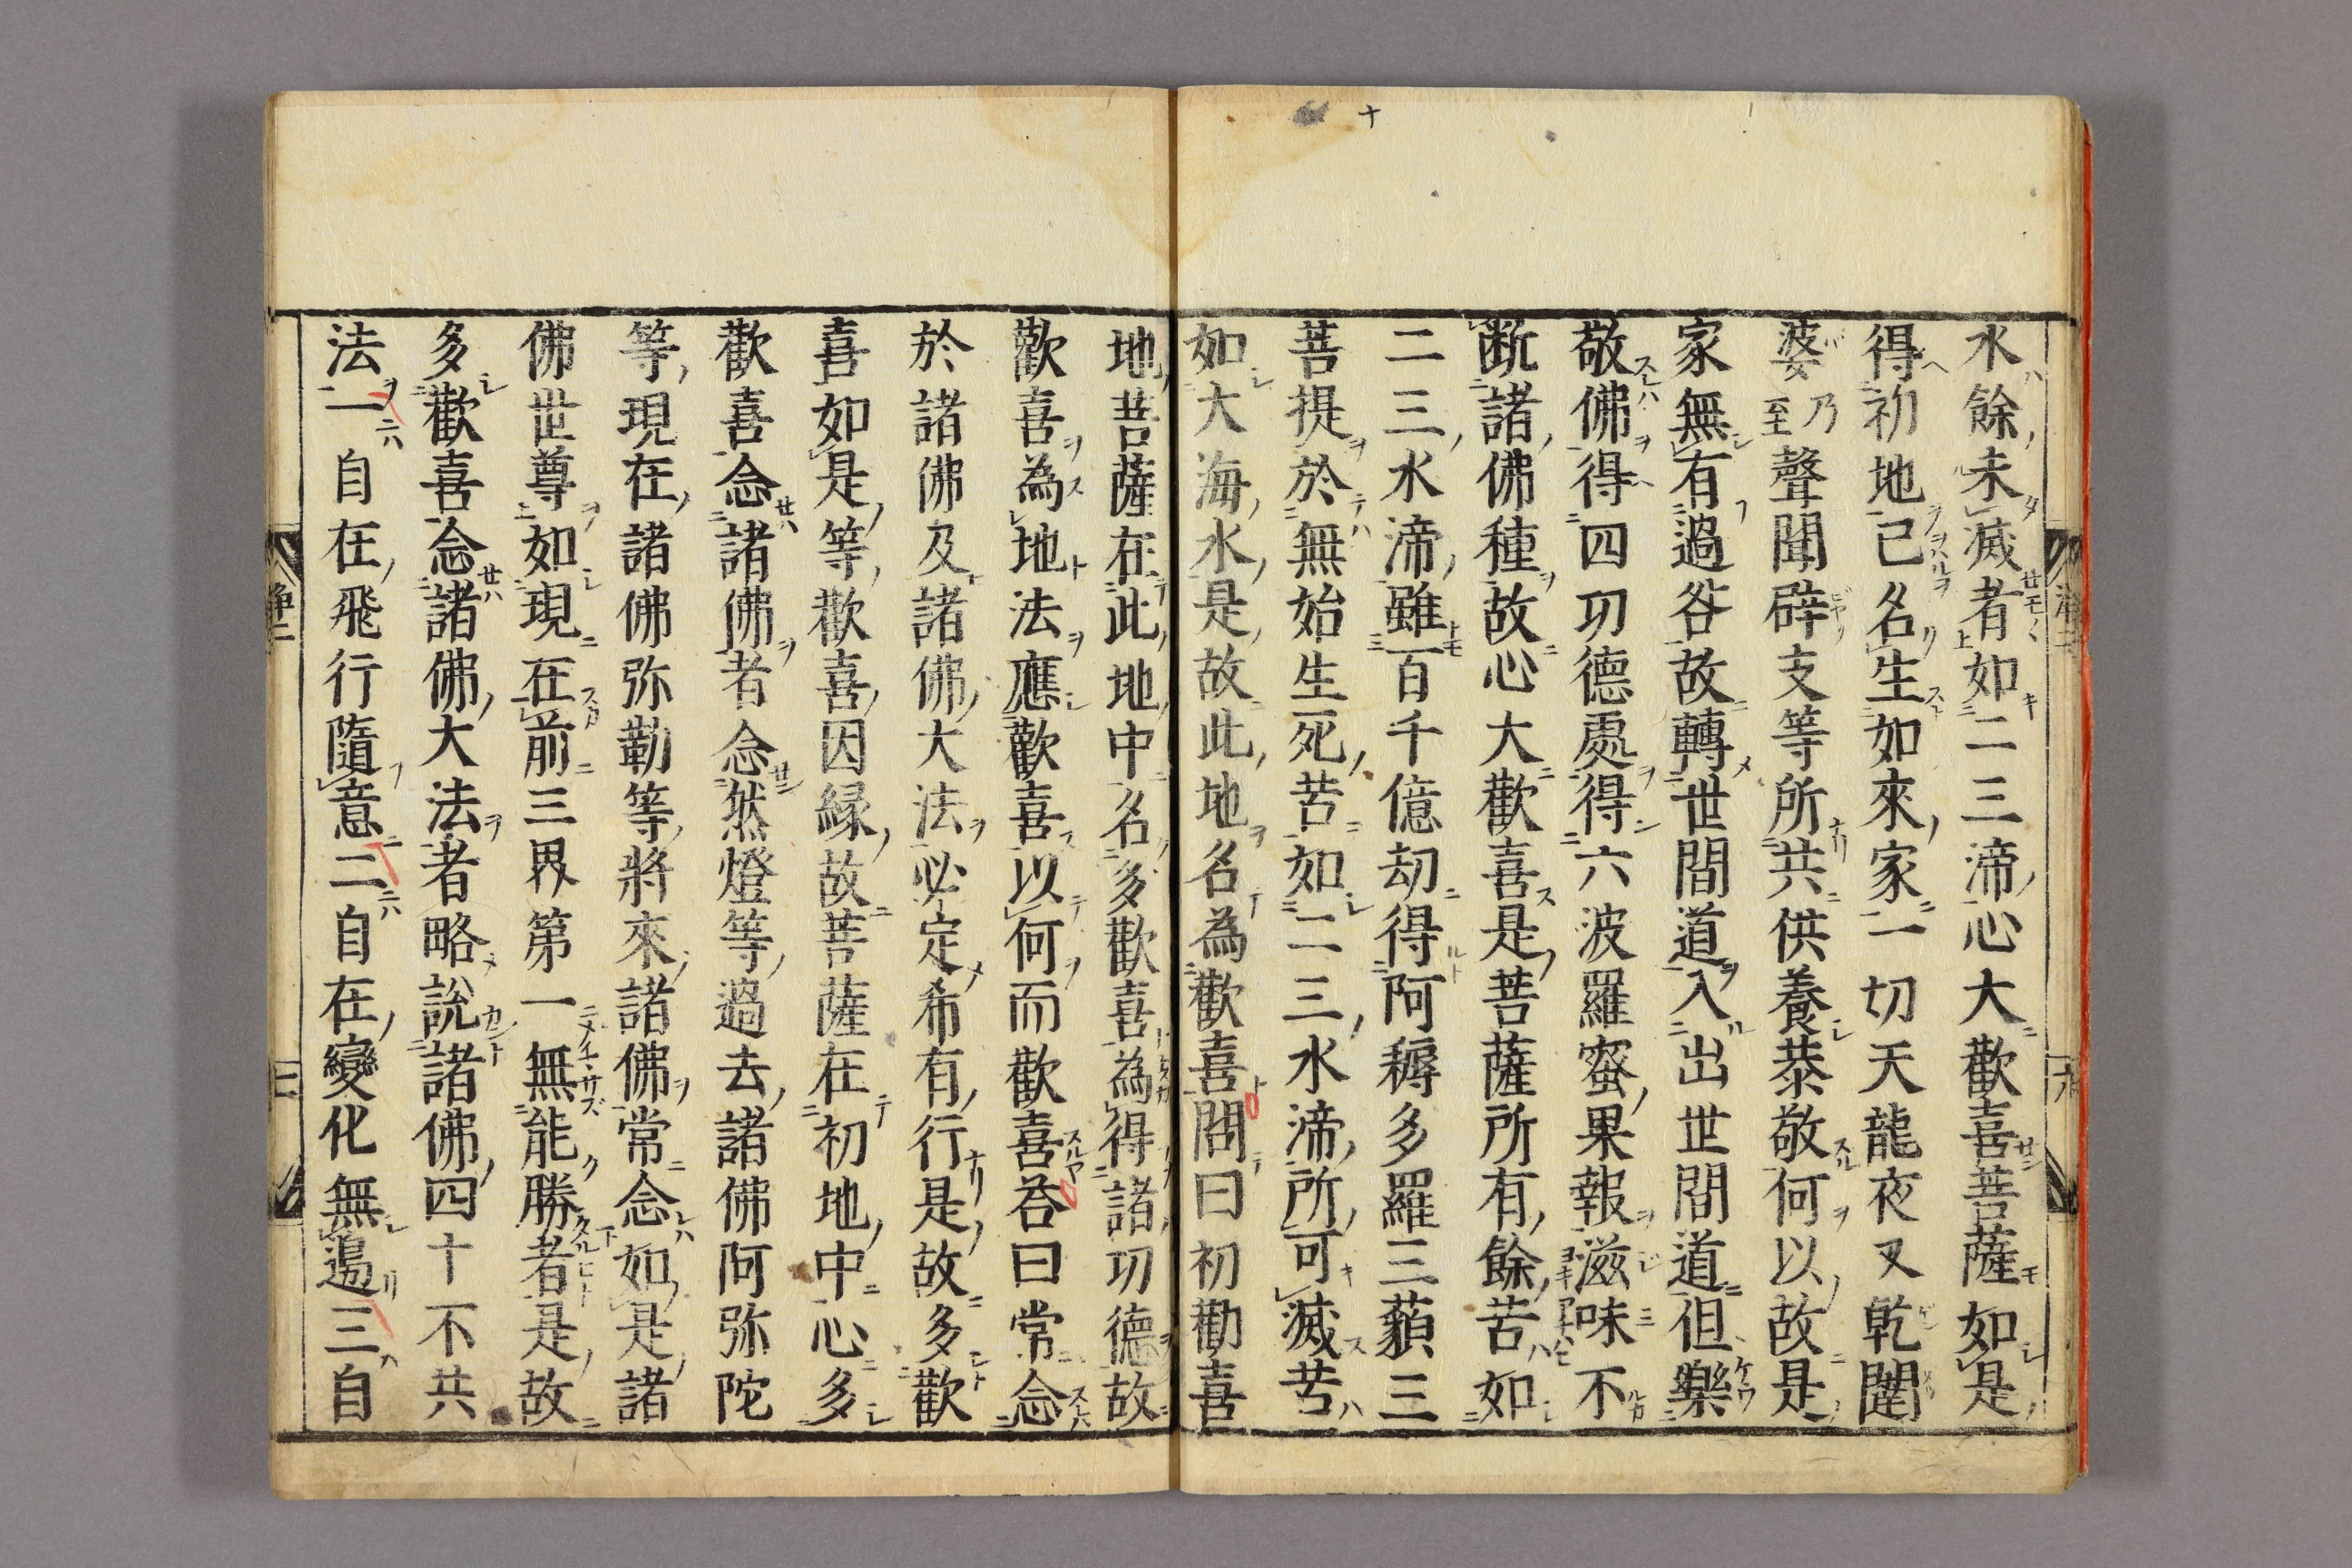 水餘未滅者如二三渧心大歡喜菩薩如是
得初地已名生如來家一切天龍夜叉乾闥
婆乃至聲聞辟支等所共供養恭敬何以故是
家無有過咎故轉世間道入出世間道但樂
敬佛得四功德處得六波羅蜜果報滋味不
斷諸佛種故心大歡喜是菩薩所有餘苦如
二三水渧雖百千億劫得阿耨多羅三藐三
菩提於無始生死苦如二三水渧所可滅苦
如大海水是故此地名為歡喜問曰初歡喜
地菩薩在此地中名多歡喜為得諸功德故
歡喜為地法應歡喜以何而歡喜荅曰常念
於諸佛及諸佛大法必定希有行是故多歡
喜如是等歡喜因緣故菩薩在初地中心多
歡喜念諸佛者念然燈等過去諸佛阿弥陀
等現在諸佛弥勒等將來諸佛常念如是諸
佛世尊如現在前三界第一無能勝者是故
多歡喜念諸佛大法者略說諸佛四十不共
法一自在飛行隨意二自在變化無邊三自